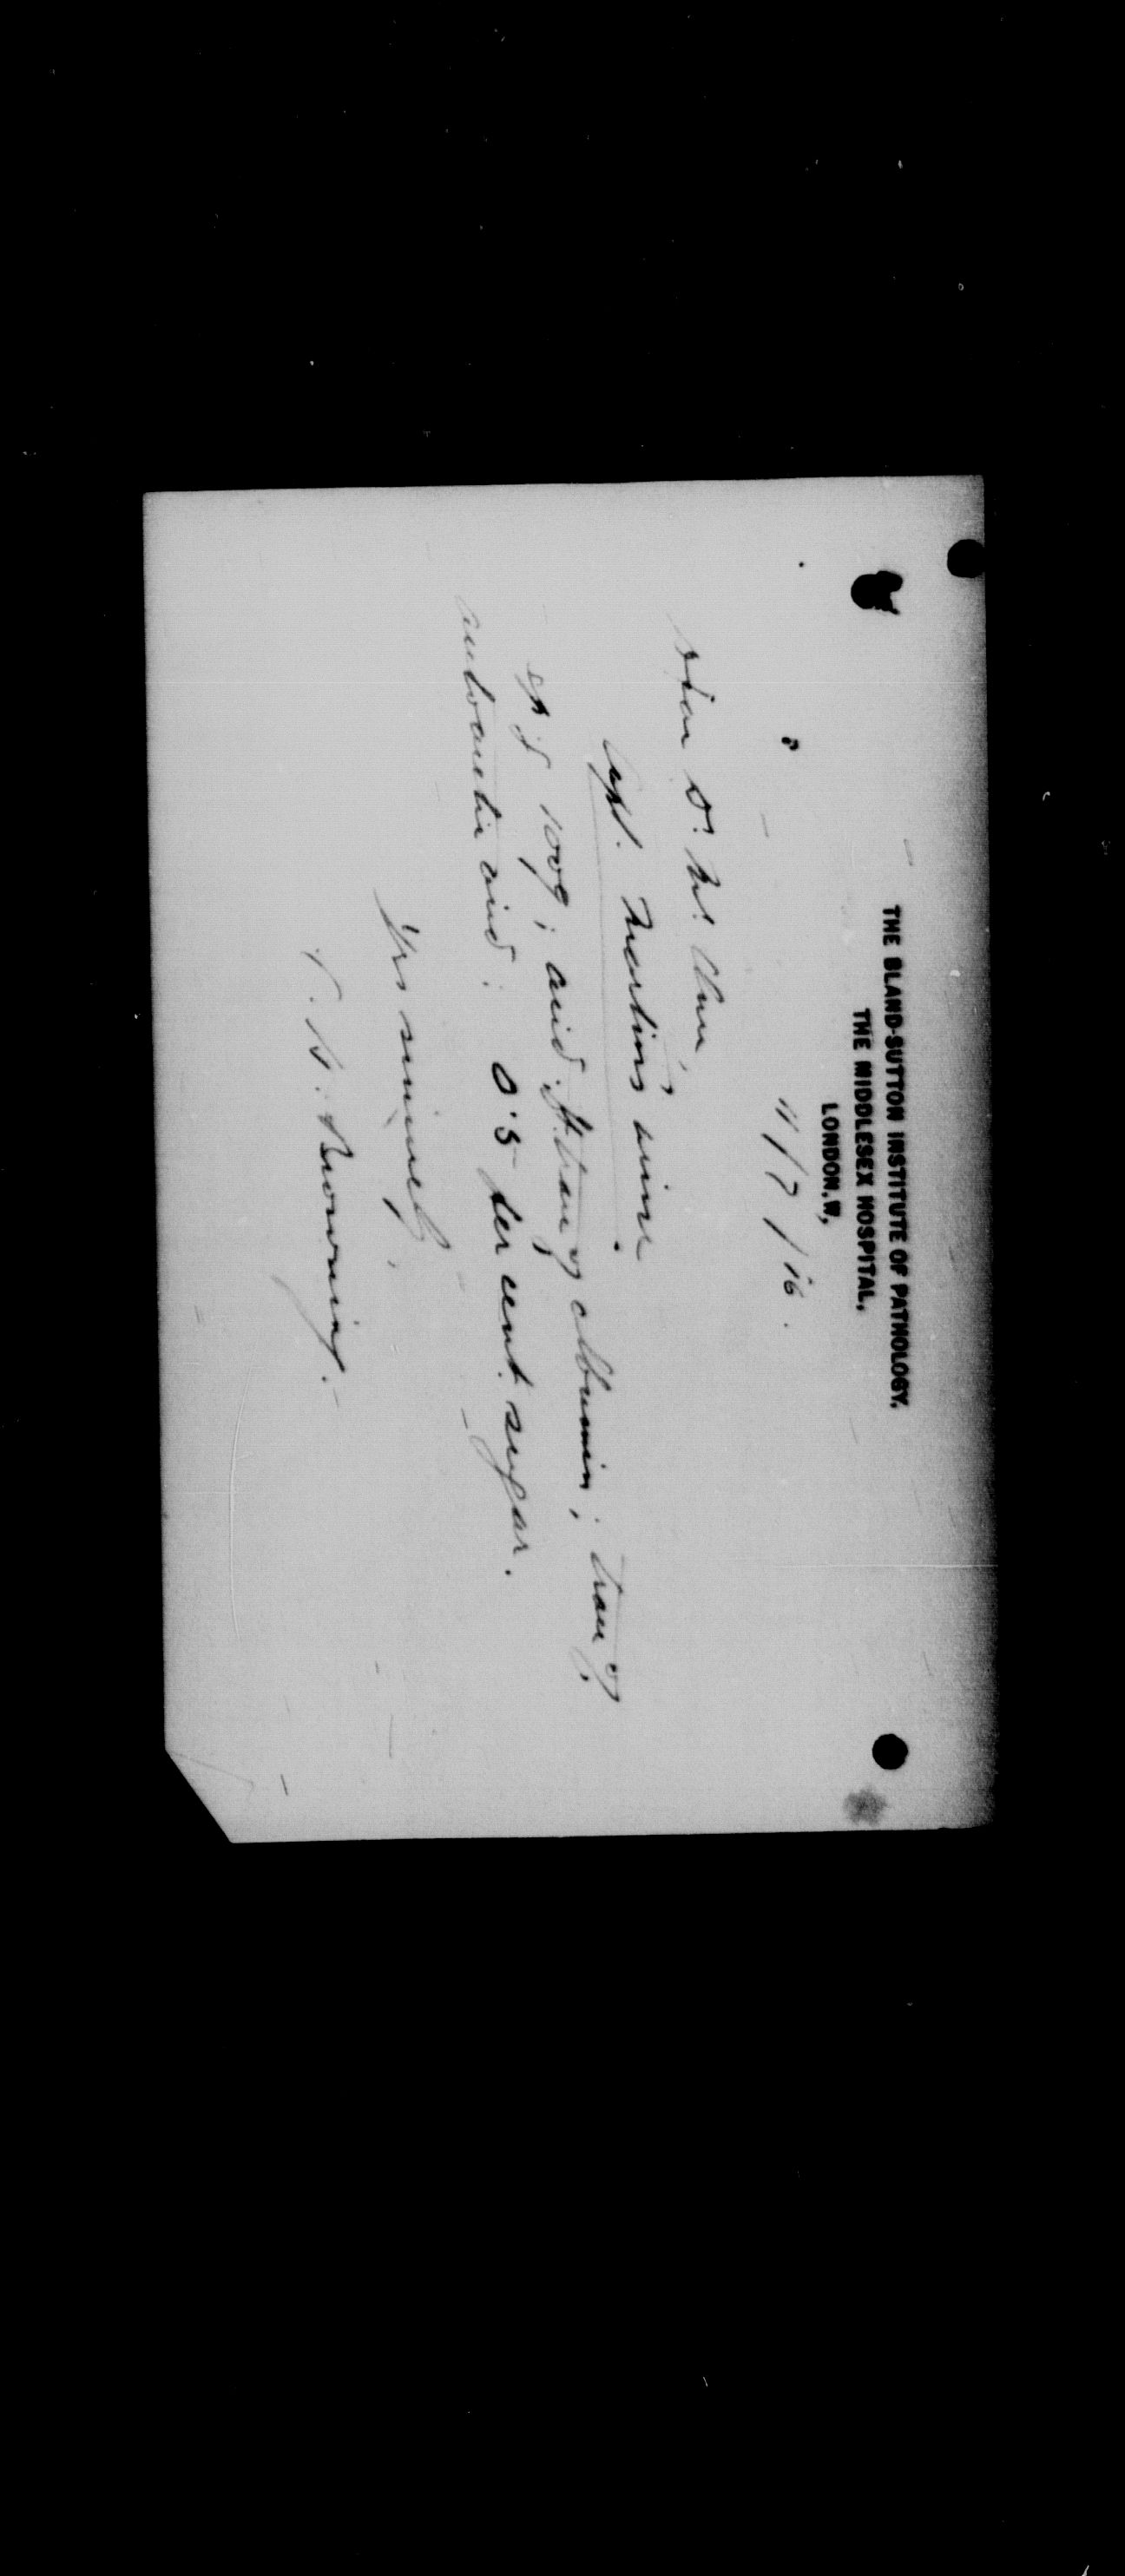 THE BLAND-SUTTON INSTITUTE OF PATHOLOGY,
THE MIDDLESEX HOSPITAL,
LONDON. W,
11/7/16.
Dear Dr
Capt. Martin's urine
sp g 1009; acid. trace of albumin; trace of
acid. 0.5 per cent sugar.
Yrs sincerely,
C. H. Browning.